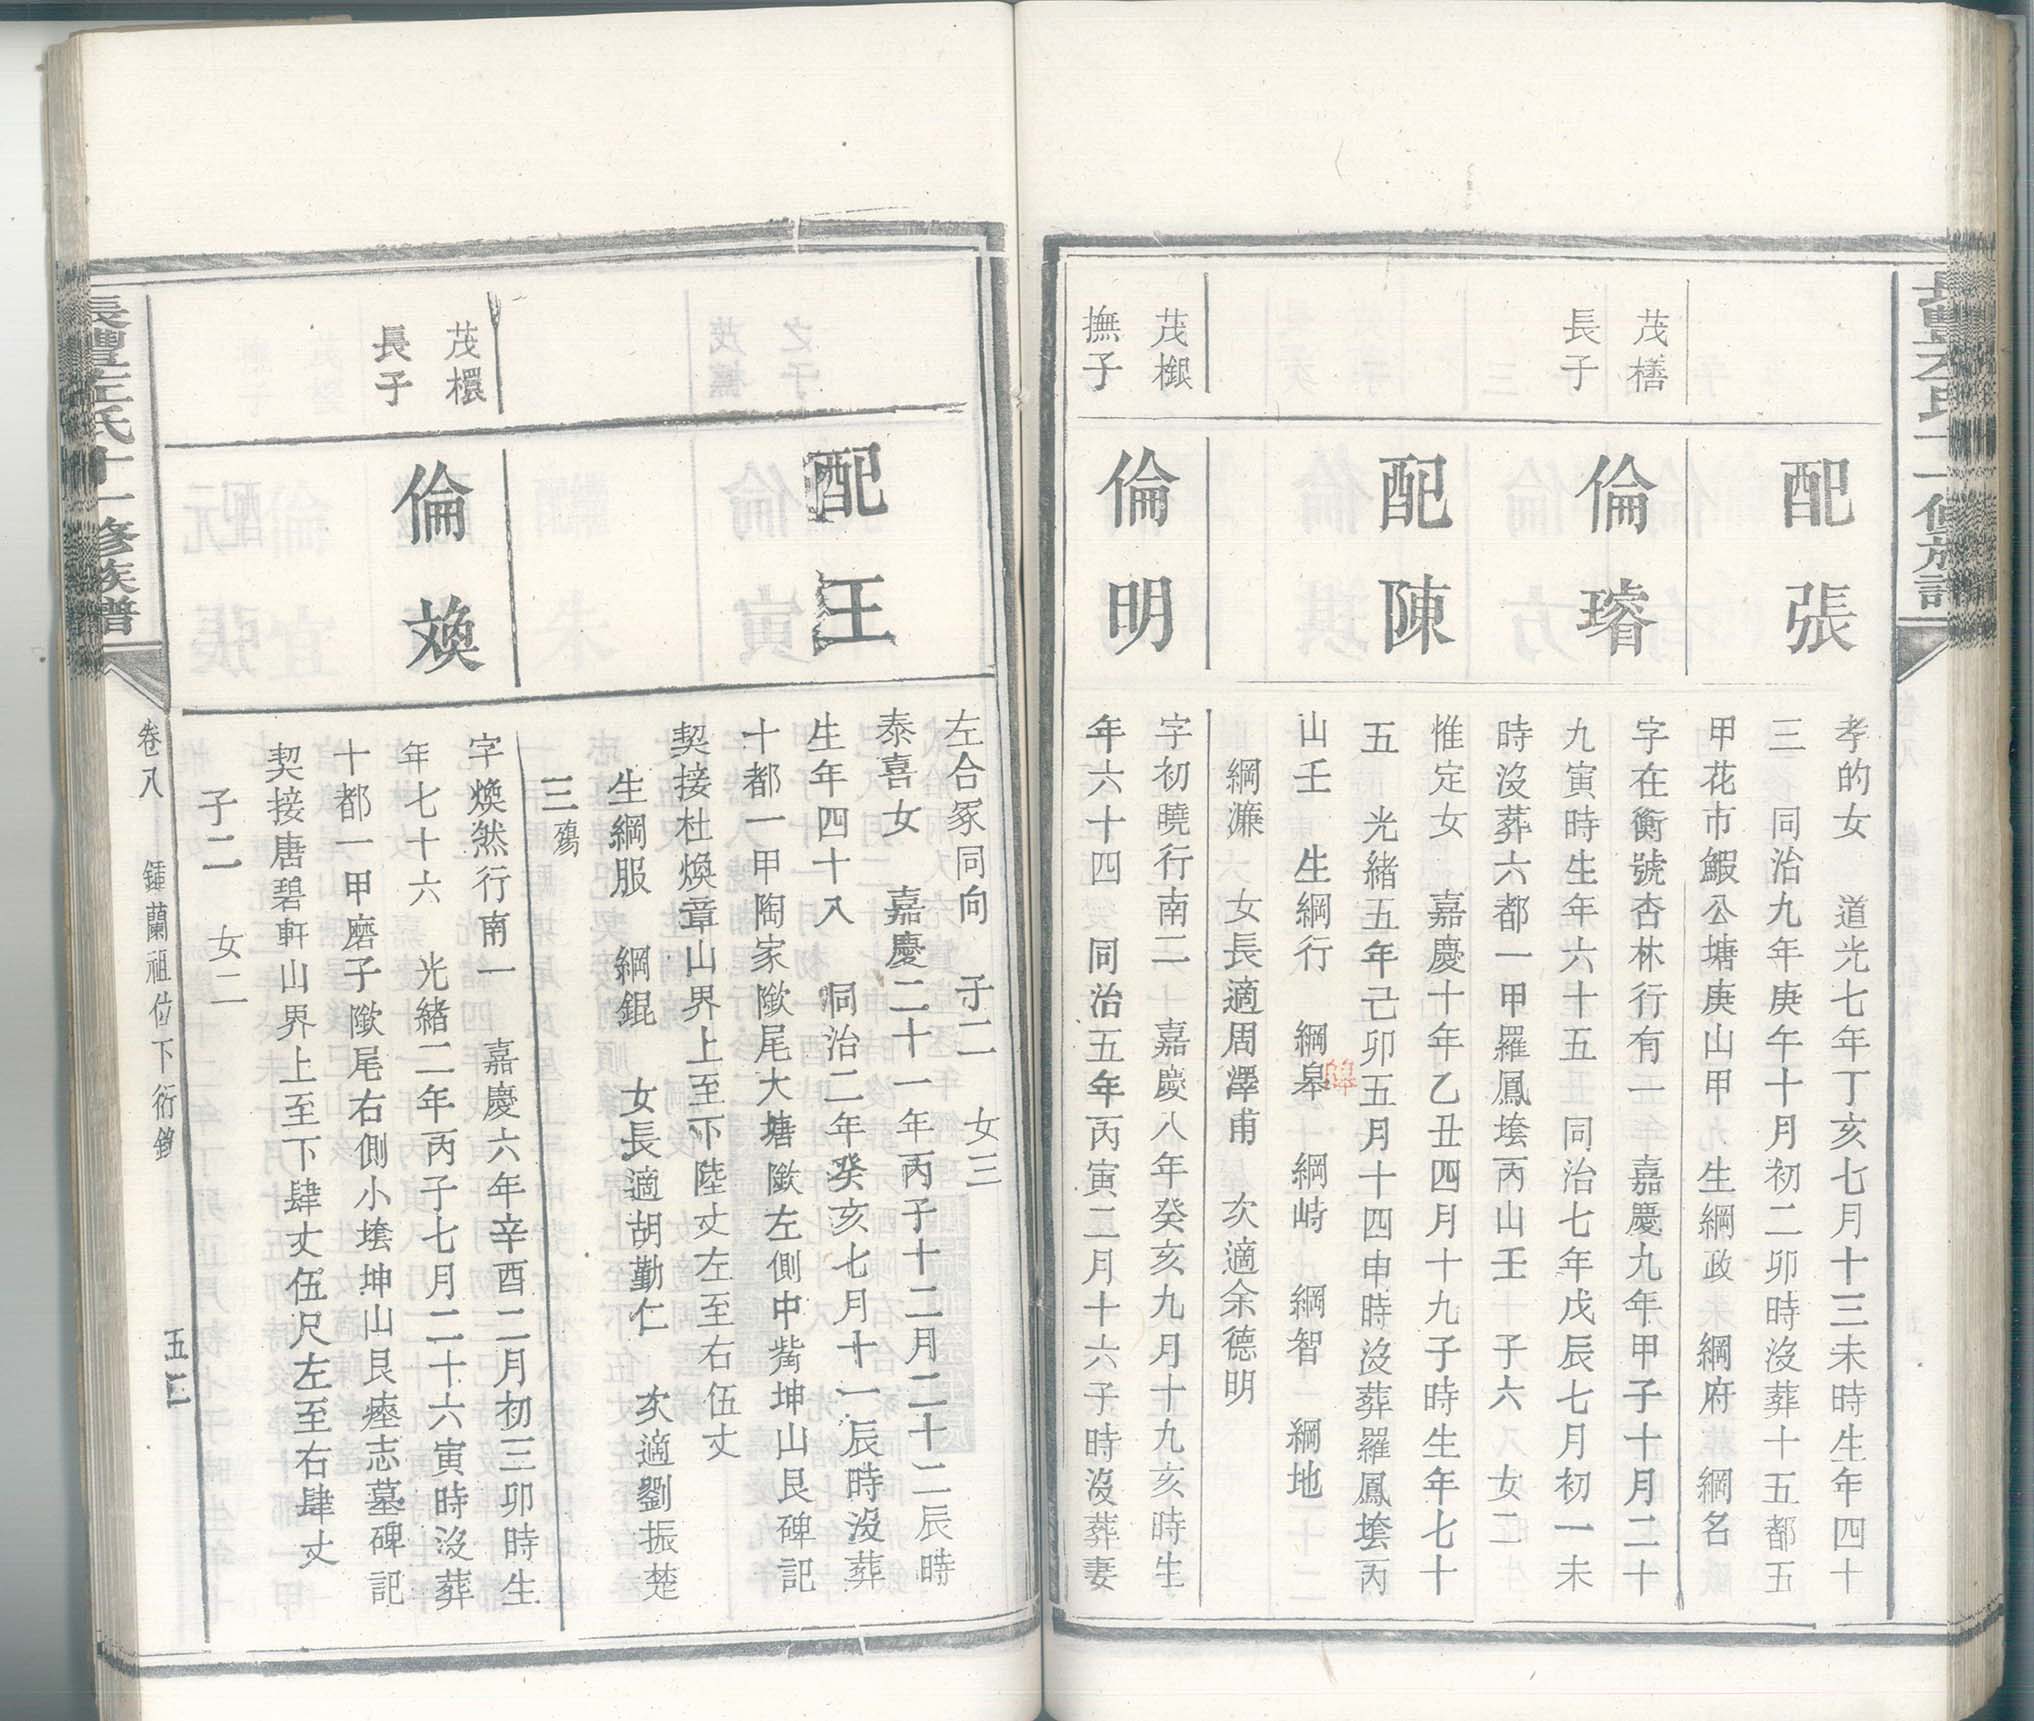 配張
孝的女 道光七年丁亥七月十三未時生年四十
三 同治九年庚午十月初二卯時沒葬十五都五
甲花市鰕公塘庚山甲 生綱政 綱府 綱名
茂橏
長子
倫璿
字在衡號杏林行有一 嘉慶九年甲子十月二十
九寅時生年六十五 同治七年戊辰七月初一未
時沒葬六都一甲羅鳳塂丙山壬 子六 女二
配陳
惟定女 嘉慶十年乙丑四月十九子時生年七十
五 光緒五年己卯五月十四申時沒葬羅鳳塂丙
山壬 生綱行 綱皋 綱峙 綱智 綱地
綱濂 女長適周澤甫 次適余德明
茂樧
撫子
倫明
字初曉行南二 嘉慶八年癸亥九月十九亥時生
年六十四 同治五年丙寅二月十六子時沒葬妻
左合冢同向 子二 女三
配王
泰喜女 嘉慶二十一年丙子十二月二十二辰時
生年四十八 同治二年癸亥七月十一辰時沒葬
十都一甲陶家歟尾大塘歟左側中觜坤山艮碑記
契接杜煥章山界上至下陸丈左至右伍丈
生綱服 綱錕 女長適胡勤仁 次適劉振楚
三殤
茂檈
長子
倫煥
字煥然行南一 嘉慶六年辛酉二月初三卯時生
年七十六 光緒二年丙子七月二十六寅時沒葬
十都一甲磨子歟尾右側小塂坤山艮瘞志墓碑記
契接唐碧軒山界上至下肆丈伍尺左至右肆丈
子二 女二
長豐左氏十一修族譜
卷八 鍾蘭祖位下衍鈞
五二